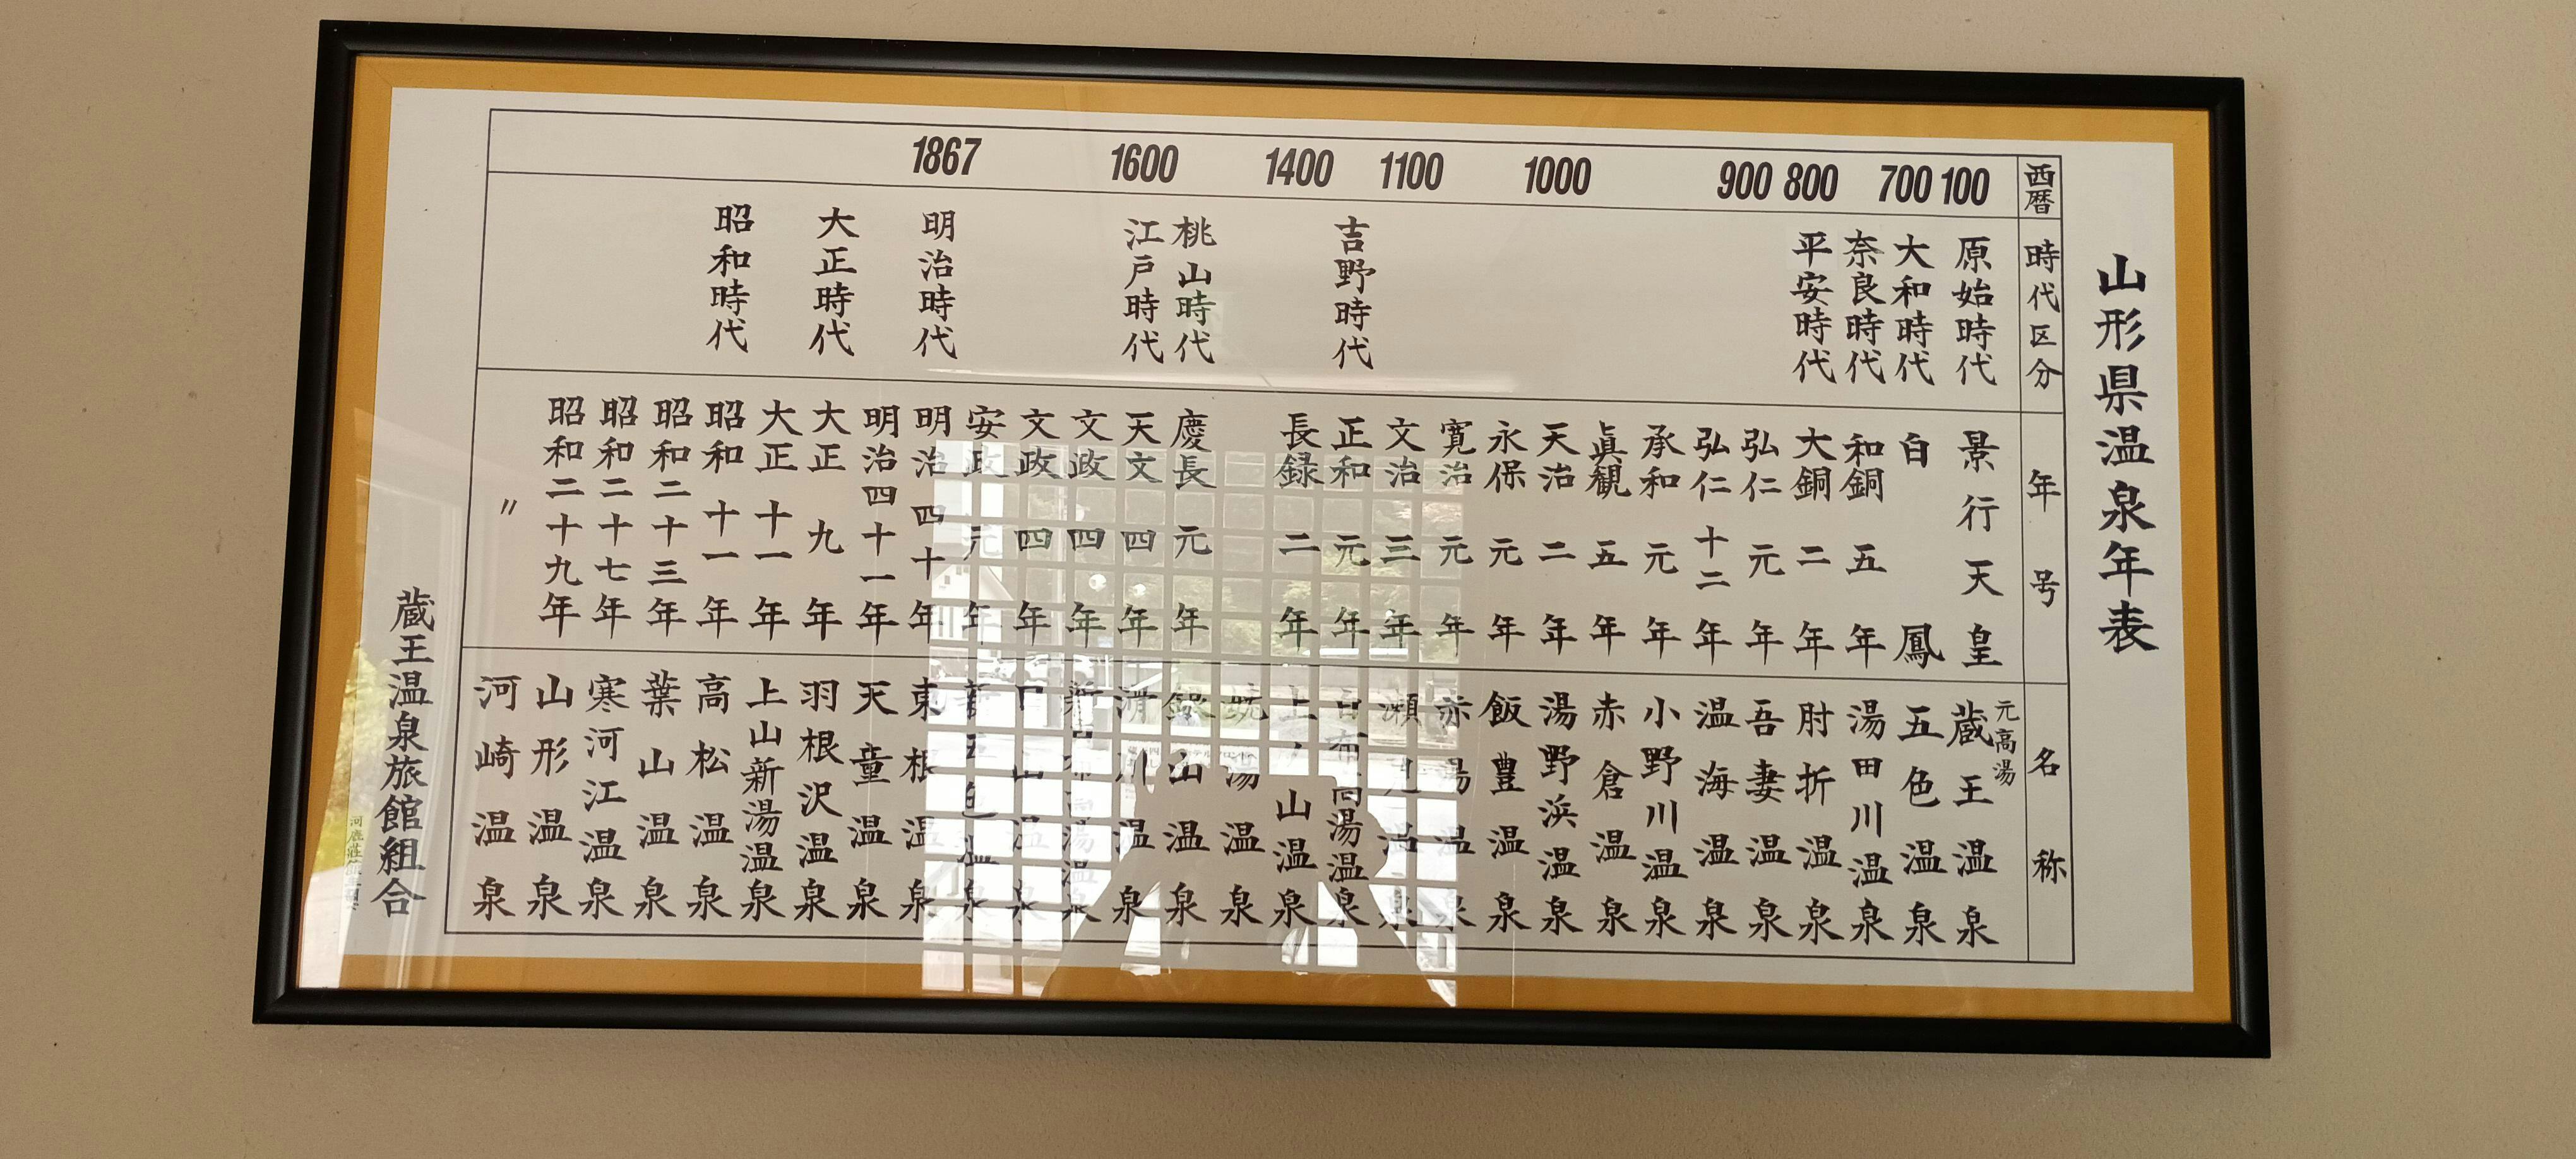 山形県温泉年表
西暦
100
700
800
900
1000
1100
1400
1600
1867
時代区分
原始時代
大和時代
奈良時代
平安時代
吉野時代
桃山時代
江戸時代
明治時代
大正時代
昭和時代
年号
景行天皇
白鳳
和銅五年
大銅二年
弘仁元年
弘仁十二年
承和元年
眞観五年
天治二年
永保元年
寛治元年
文治三年
正和元年
長録二年
慶長元年
天文四年
文政四年
文政四年
安政元年
明治四十年
明治四十一年
大正九年
大正十一年
昭和十一年
昭和二十三年
昭和二十七年
昭和二十九年
〃
名称
元高湯
蔵王温泉
五色温泉
湯田川温泉
肘折温泉
吾妻温泉
温海温泉
小野川温泉
赤倉温泉
湯野浜温泉
飯豊温泉
赤湯温泉
瀬見温泉
白布高湯温泉
上ノ山温泉
湯温泉
銀山温泉
滑川温泉
新高湯温泉
山温泉
新五色温泉
東根温泉
天童温泉
羽根沢温泉
上山新湯温泉
高松温泉
葉山温泉
寒河江温泉
山形温泉
河崎温泉
蔵王温泉旅館組合